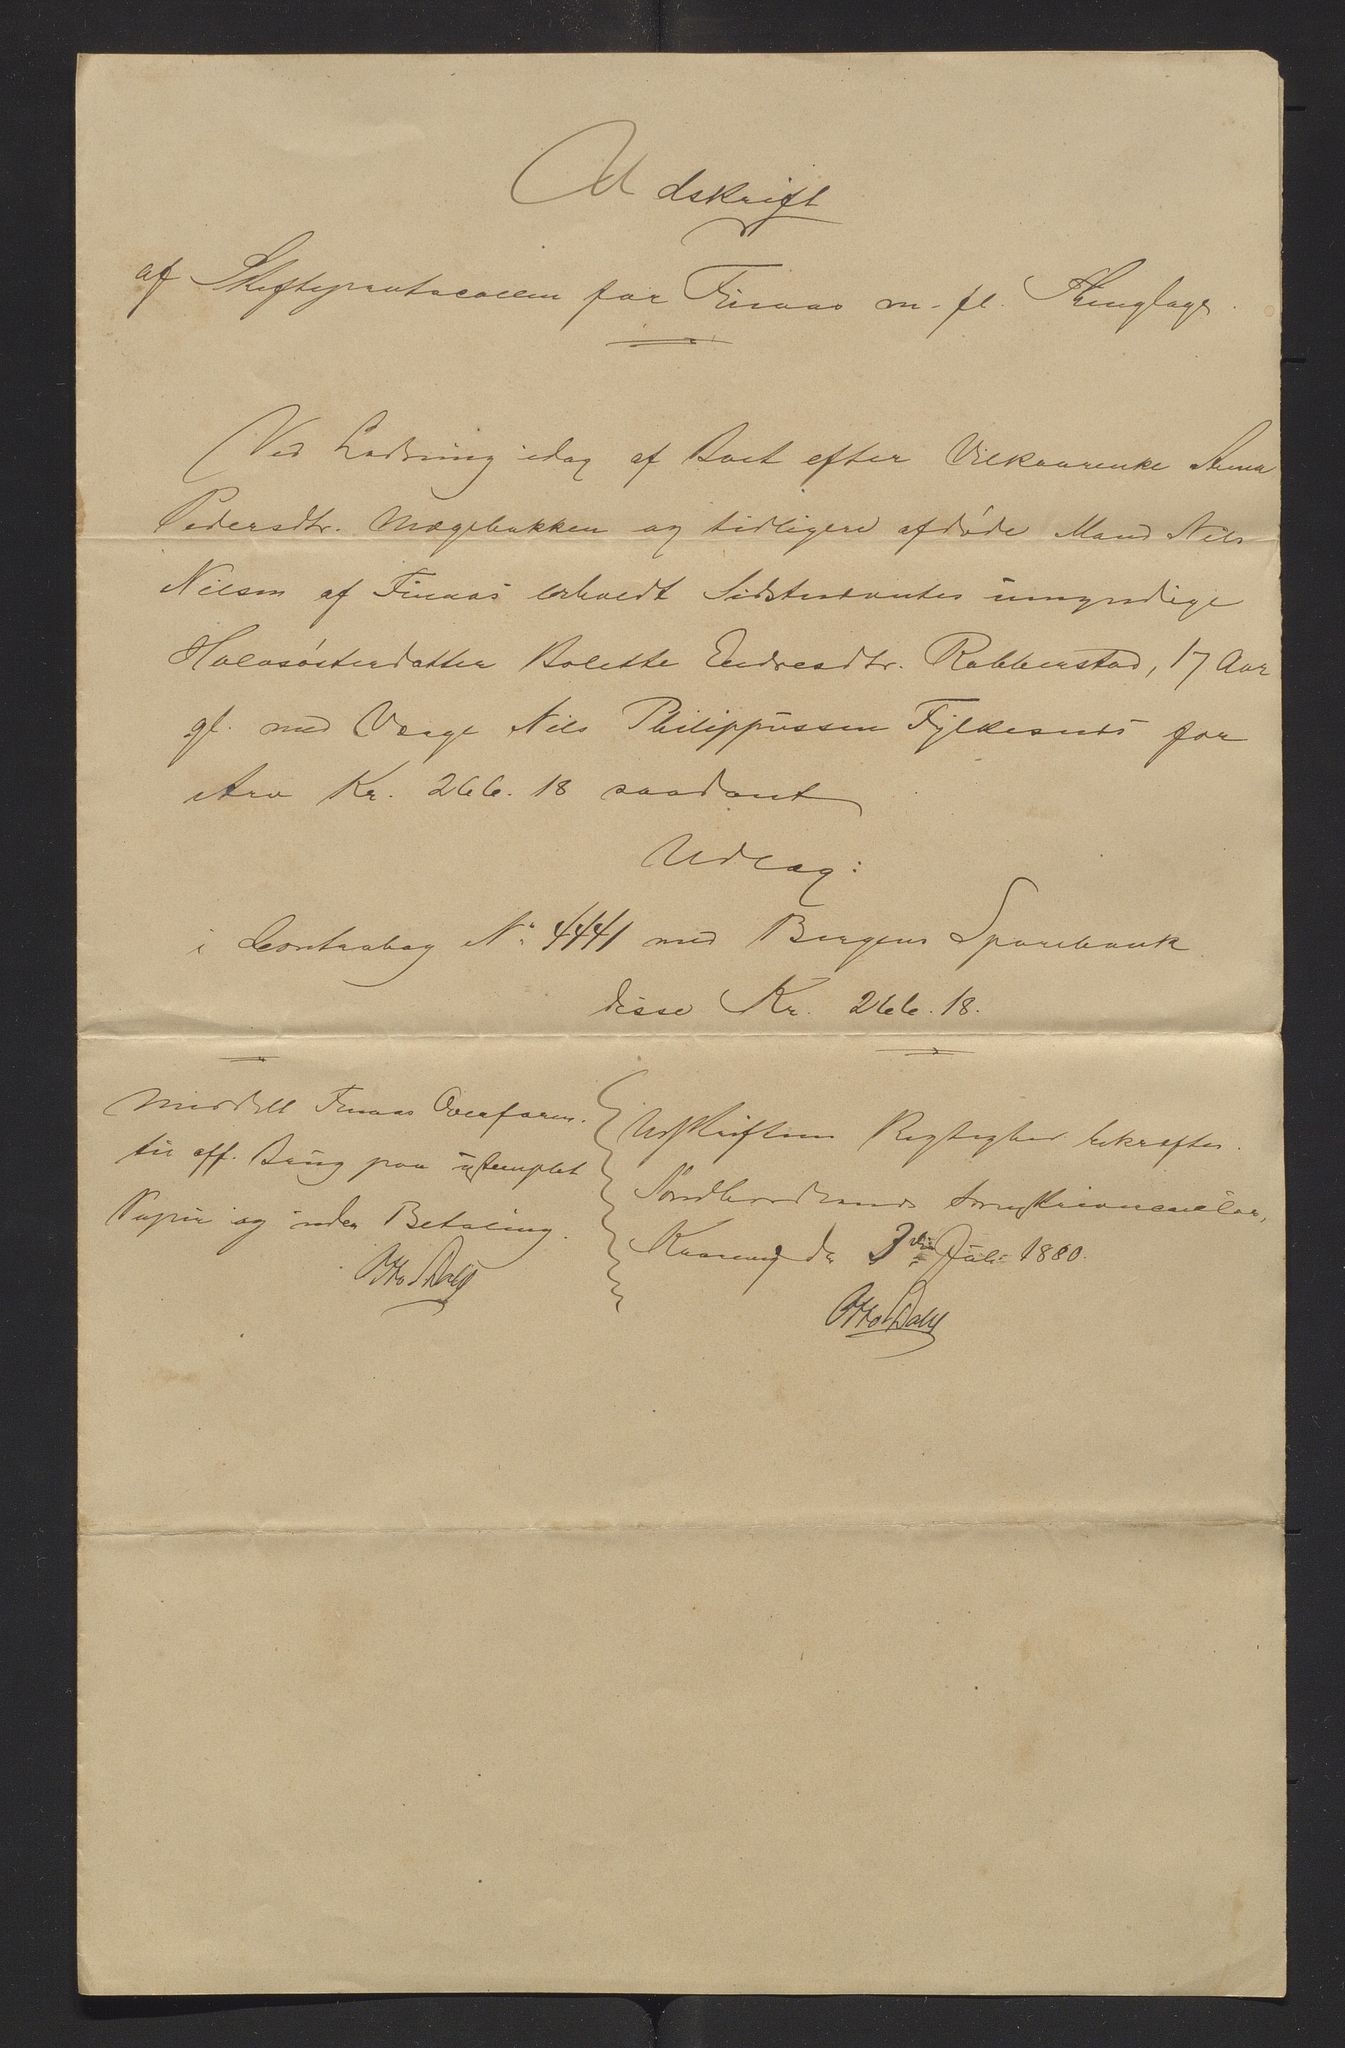 Udskrift
af Skifteprotocollen for Finaas m. fl. Thinglage.
Ved Lodning idag af Boet efter Vilkaarenke Anna
Pedersdtr. Mægebakken og tidligere afdøde Mand Nils
Nilsen af Finaas erholdt Sidstnævntes umyndige
Halvsøsterdatter Bolette Endresdtr. Robberstad, 17 Aar
gl. med Værge Nils Philippussen Fylkesnes for
Arv Kr. 266.18 saadant
Udlæg:
i Contrabog No 4441 med Bergens Sparebank
disse Kr. 266.18.
Meddelt Finaas Overform.
til off. Brug paa ustemplet
Papir og uden Betaling.
Otto Dahl
Udskriftens Rigtighed bekræftes.
Søndhordlands Sorenskrivercontor,
den 3die Juli 1880.
Otto Dahl